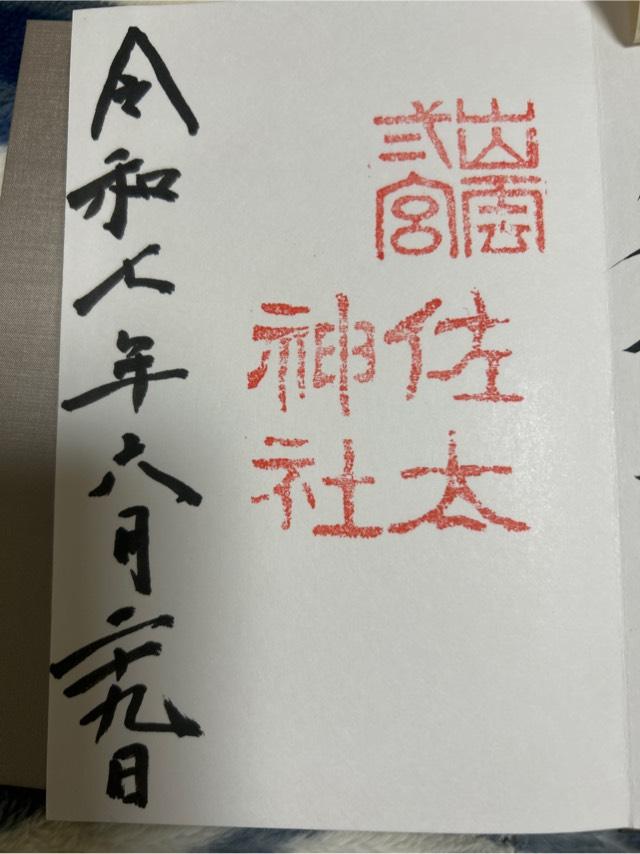 出雲
弍宮
佐太
神社
令和七年六月二十九日